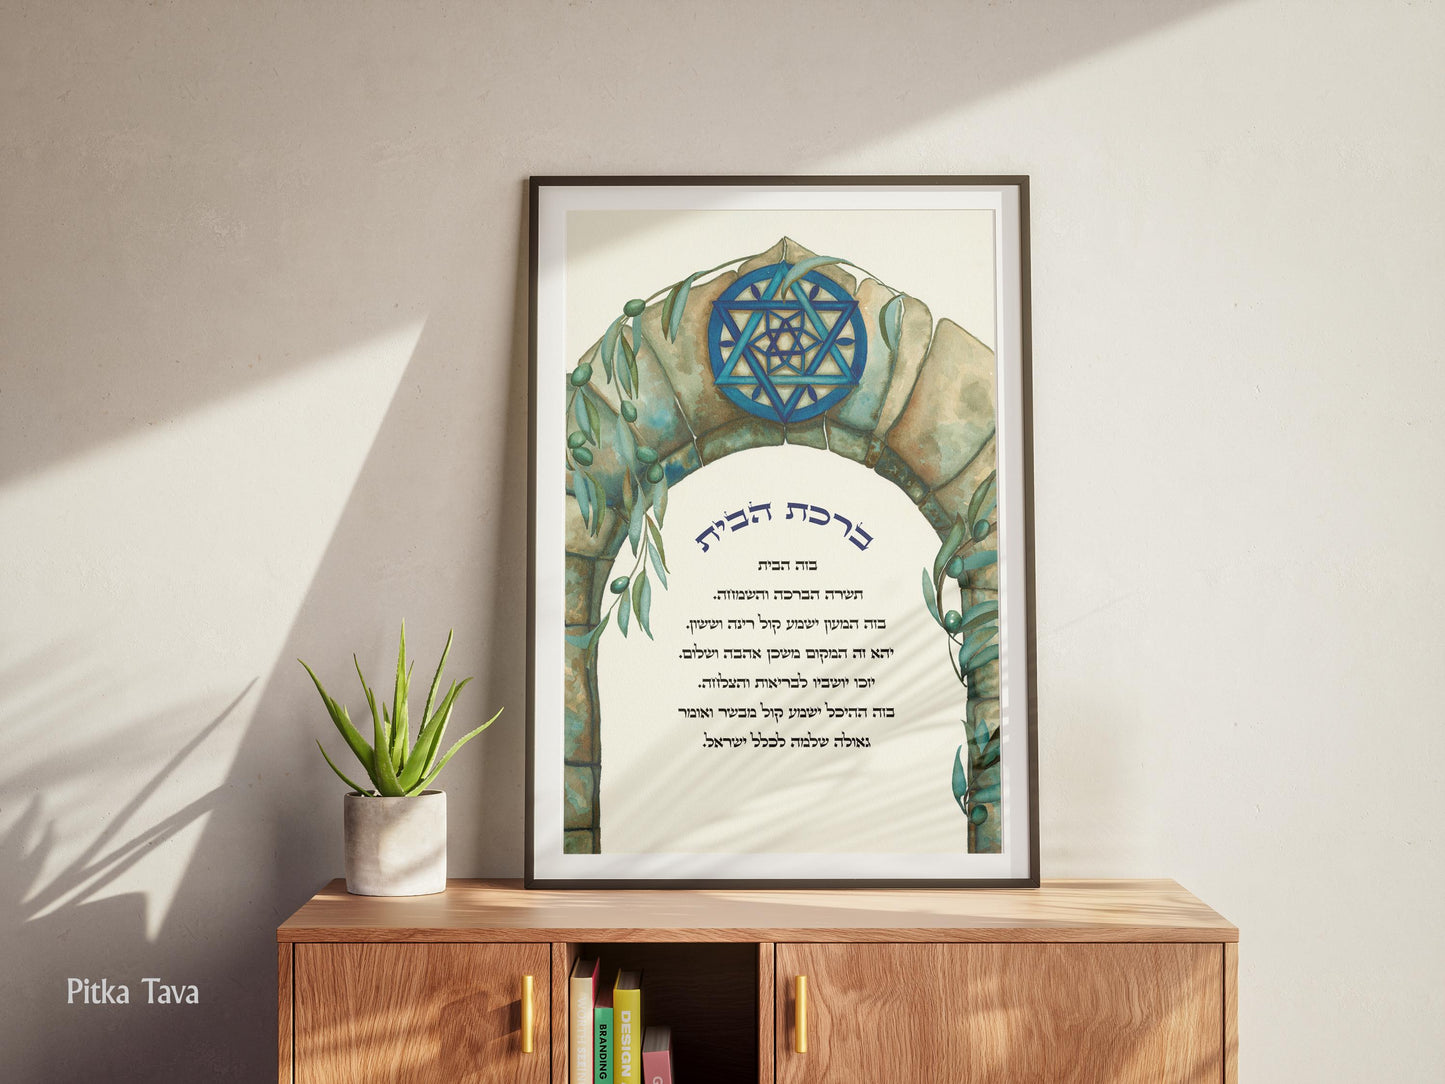 ברכת הבית
בזה הבית
תשרה הברכה והשמחה.
בזה המעון ישמע קול רינה וששון.
יהא זה המקום משכן אהבה ושלום.
יזכו יושביו לבריאות והצלחה.
בזה ההיכל ישמע קול מבשר ואומר
גאולה שלמה לכלל ישראל.
Pitka Tava
WORTH SEEING
BRANDING
DESIGN